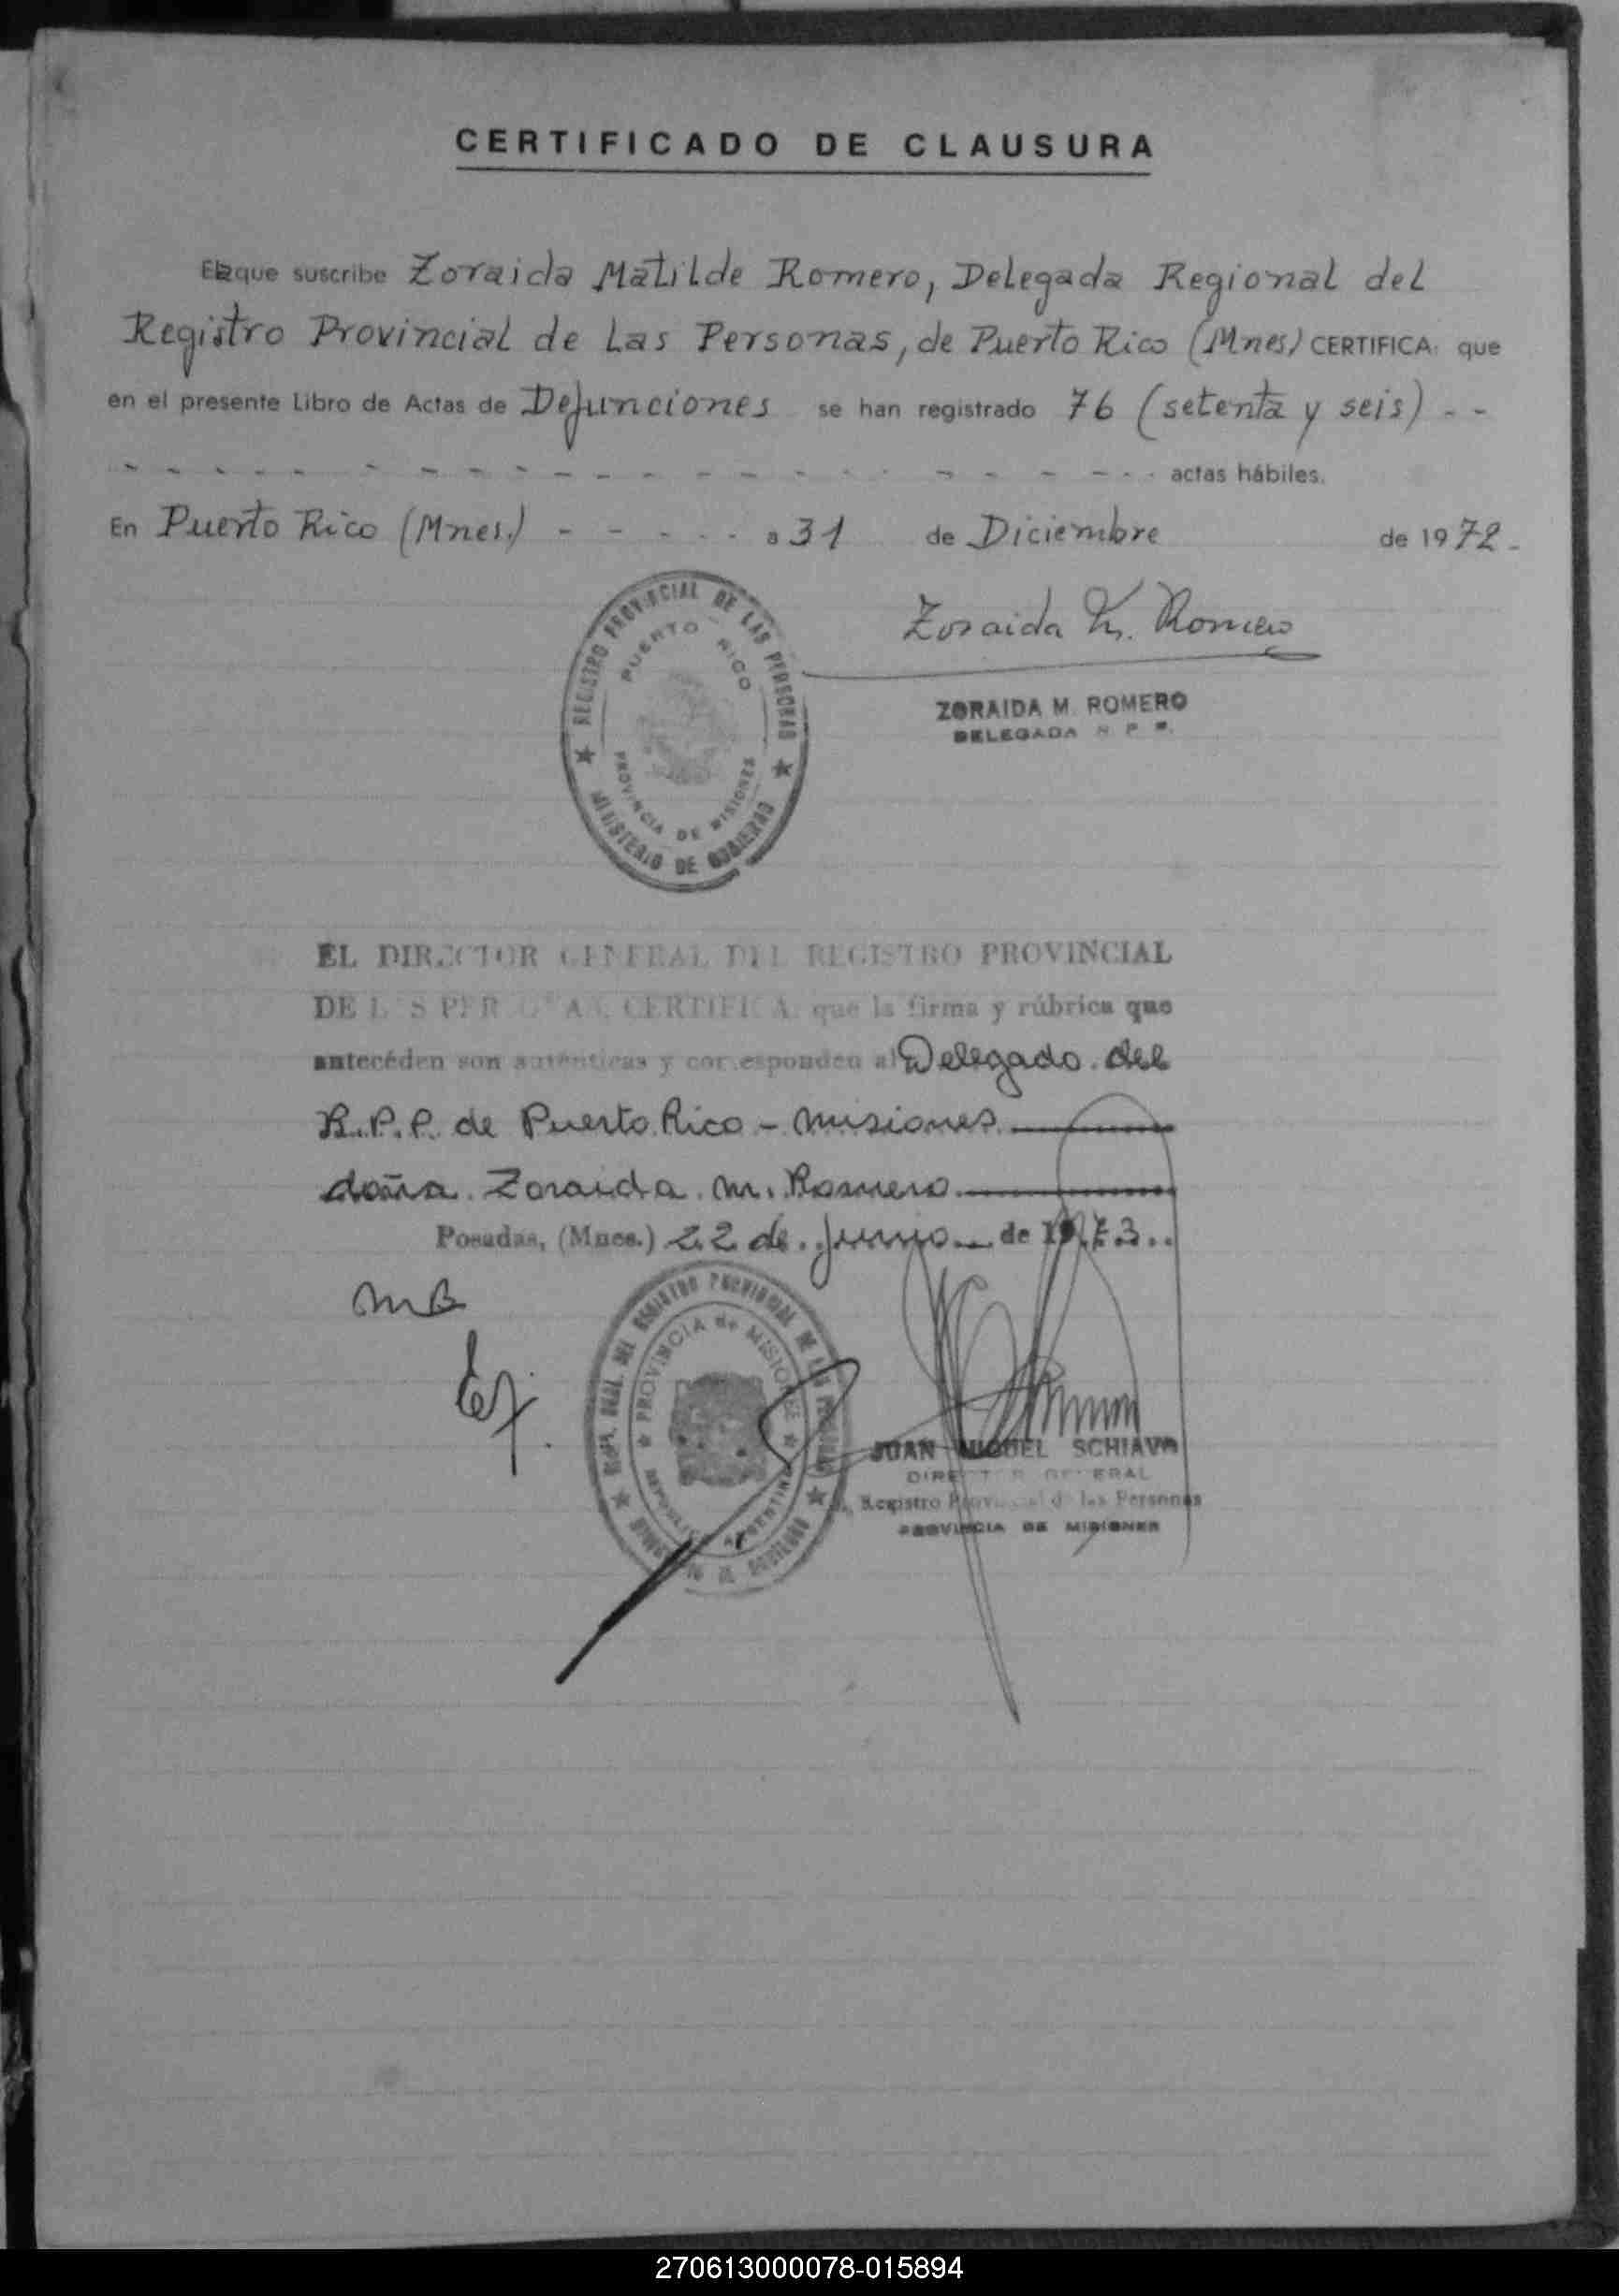 CERTIFICADO DE CLAUSURA
La que suscribe Zoraida Matilde Romero, Delegada Regional del
Registro Provincial de Las Personas, de Puerto Rico (Mnes) CERTIFICA: que
en el presente Libro de Actas de Defunciones se han registrado 76 (setenta y seis) - -
actas hábiles.
En Puerto Rico (Mnes.) - - - - - a 31 de Diciembre de 1972.-
REGISTRO PROVINCIAL DE LAS PERSONAS
PUERTO RICO
PROVINCIA DE MISIONES
MINISTERIO DE GOBIERNO
Zoraida M. Romero
ZORAIDA M. ROMERO
DELEGADA R. P. P.
EL DIRECTOR GENERAL DEL REGISTRO PROVINCIAL
DE LAS PERSONAS, CERTIFICA: que la firma y rúbrica que
antecéden son auténticas y corresponden al Delegado del
R.P.P. de Puerto Rico - Misiones
doña Zoraida M. Romero
Posadas, (Mnes.) 22 de Junio de 1973..
DEL REGISTRO PROVINCIAL DE LAS PERSONAS
PROVINCIA de MISIONES
REPUBLICA ARGENTINA
JUAN MIGUEL SCHIAVA
DIRECTOR GENERAL
Registro Provincial de las Personas
PROVINCIA DE MISIONES
270613000078-015894